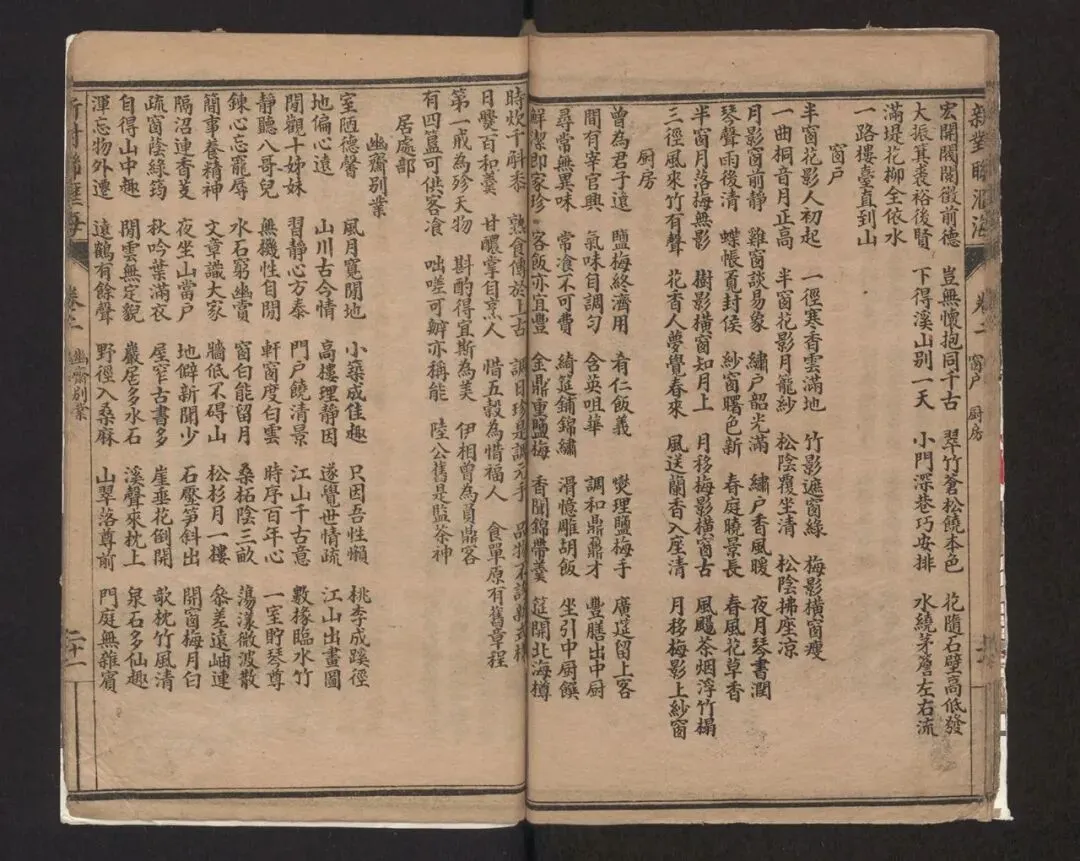 宏開閥閱徵前德 豈無懷抱同千古 翠竹蒼松饒本色 花隨石壁高低發
大振箕裘裕後賢 下得溪山别一天 小門深巷巧安排 水繞茅簷左右流
滿堤花柳全依水
一路樓臺直到山
窗戶
半窗花影人初起 一徑寒香雲滿地 竹影遮窗綠 梅影橫窗瘦
一曲桐音月正高 半窗花影月籠紗 松陰覆坐清 松陰拂座凉
月影窗前靜 雞窗談易象 繡戶韶光滿 繡戶香風暖 夜月琴書潤
琴聲雨後清 蝶帳覓封侯 紗窗曙色新 春庭曉景長 春風花草香
半窗月落梅無影 樹影橫窗知月上 月移梅影橫窗古 風颺茶烟浮竹榻
三徑風來竹有聲 花香人夢覺春來 風送蘭香入座清 月移梅影上紗窗
厨房
曾為君子遠 鹽梅終濟用 有仁飯義 燮理鹽梅手 廣筵留上客
間有宰官興 氣味自調勻 含英咀華 調和鼎鼐才 豐膳出中厨
尋常無異味 常飡不可費 綺筵鋪錦繡 滑憶雕胡飯 坐引中厨饌
鮮潔即家珍 客飯亦宜豐 金鼎重鹽梅 香聞錦帶羹 筵開北海樽
新對聯匯海 卷二 窗戶 厨房
時炊千斛黍 熟食傳於上古 調日珍是調元手
日饗百和羹 甘醲掌自烹人 惜五穀為惜福人 食單原有舊章程
第一戒為殄天物 斟酌得宜斯為美 伊相曾為負鼎客
有四簋可供客飡 咄嗟可辦亦稱能 陸公舊是監茶神
居處部
幽齋别業
室陋德馨 風月寬閒地 小築成佳趣 只因吾性懶 桃李成蹊徑
地偏心遠 山川古今情 高樓理靜因 遂覺世情疏 江山出畫圖
閒觀十姊妹 習靜心方泰 門戶饒清景 江山千古意 數椽臨水竹
靜聽八哥兒 無機性自閒 軒窗度白雲 時序百年心 一室貯琴尊
鍊心忘寵辱 水石窮幽賞 窗白能留月 桑柘陰三畝 蕩漾微波散
簡事養精神 文章識大家 牆低不碍山 松杉月一樓 參差遠岫連
隔沼連香芰 夜坐山當戶 地僻新聞少 石壓笋斜出 開窗梅月白
疏窗陰綠筠 秋吟葉滿衣 屋窄古書多 崖垂花倒開 欹枕竹風清
自得山中趣 閒雲無定貌 巖居多水石 溪聲來枕上 泉石多仙趣
渾忘物外遷 遠鶴有餘聲 野徑入桑麻 山翠落尊前 門庭無雜賓
新對聯匯海 卷二 幽齋别業 二十一